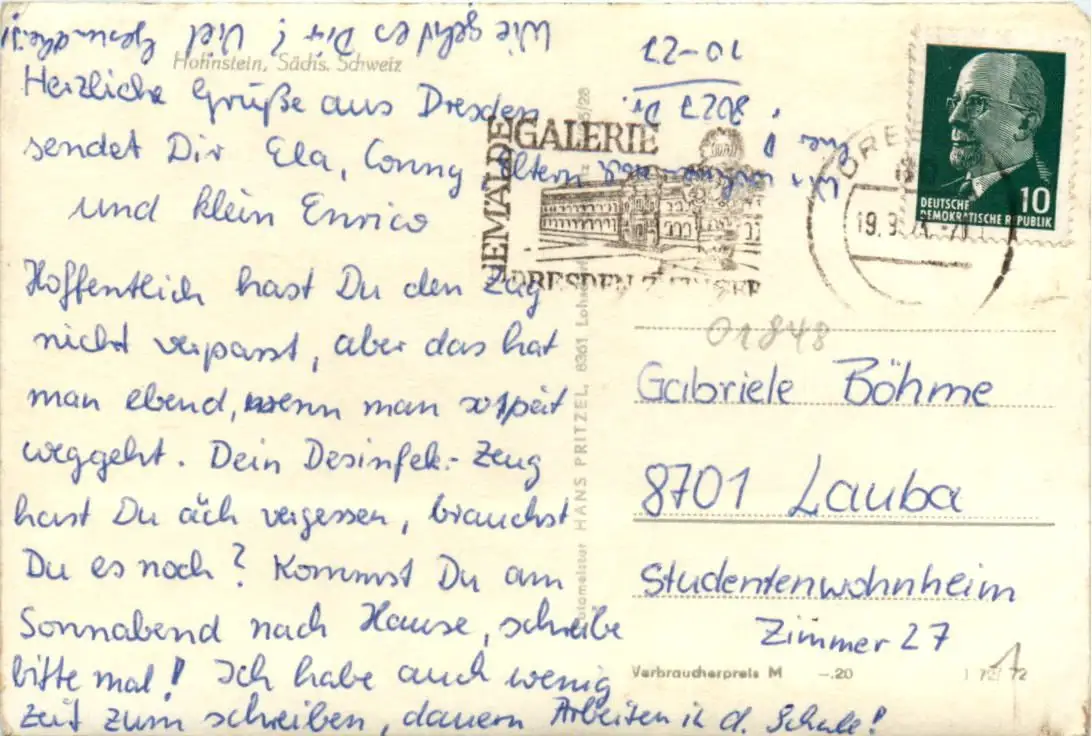 Hohnstein, Sächs. Schweiz
Herzliche Grüße aus Dresden
sendet Dir Ela, Conny Eltern
und klein Enrico
Hoffentlich hast Du den Zug
nicht verpasst, aber das hat
man ebend, wenn man so spät
weggeht. Dein Desinfek.-Zeug
hast Du äch vergessen, brauchst
Du es noch? Kommst Du am
Sonnabend nach Hause, schreibe
bitte mal! Ich habe auch wenig
Zeit zum schreiben, dauern Arbeiten in d. Schule!
Wie geht es Dir? Viel
8027 Dr.
10-27
GEMÄLDE
GALERIE
DRESDEN ZWINGER
DEUTSCHE
DEMOKRATISCHE REPUBLIK
10
HANS PRITZEL, 8361
01848
Gabriele Böhme
8701 Lauba
Studentenwohnheim
Zimmer 27
Verbraucherpreis M -.20